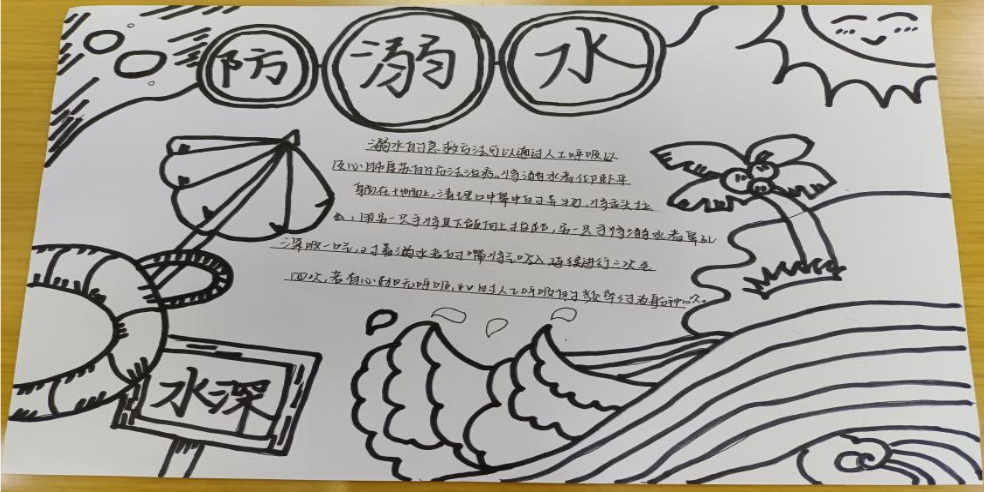 防溺水
溺水的急救方法可以通过人工呼吸以
及心肺复苏的方法治疗,将溺水者仰卧平
躺在地面上,清理口中鼻中的异物,将舌头拉
出,用另一只手将其下颌向上抬起,另一只手将溺水者鼻孔
深吸一口气,对着溺水者的嘴将气吹入,连续进行二次至
四次,若有心跳无呼吸,人工呼吸的频率
水深